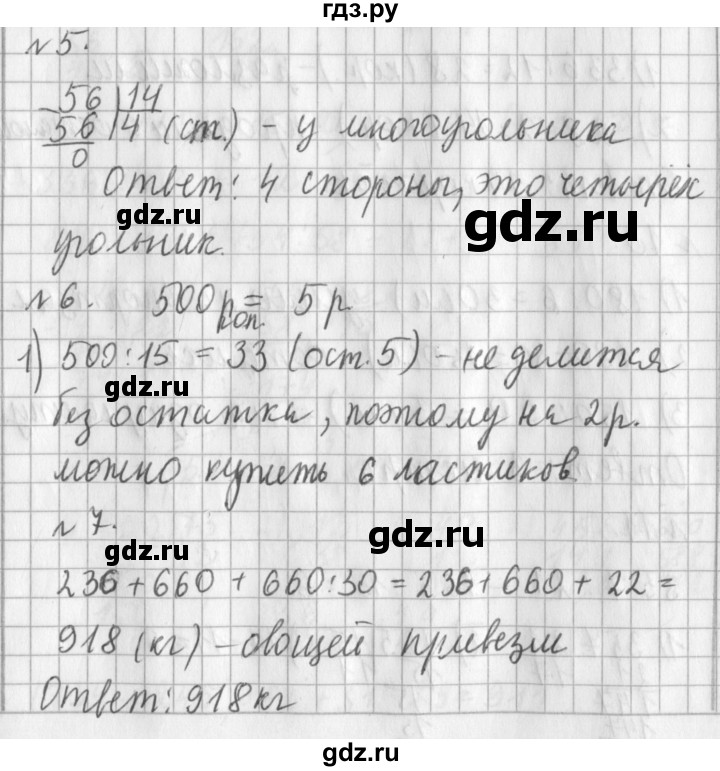 гдз.ру
№ 5.
56 | 14
56 | 4 (ст.) - у многоугольника
0
Ответ: 4 стороны, это четырёх
gdz.ru
gdz.ru
угольник.
№ 6. 500 коп. = 5 р.
1) 500 : 15 = 33 (ост. 5) - не делится
без остатка, поэтому на 2 р.
можно купить 6 ластиков
№ 7.
gdz.ru
gdz.ru
236 + 660 + 660 : 30 = 236 + 660 + 22 =
918 (кг) - овощей привезли
Ответ: 918 кг
gdz.ru
gdz.ru